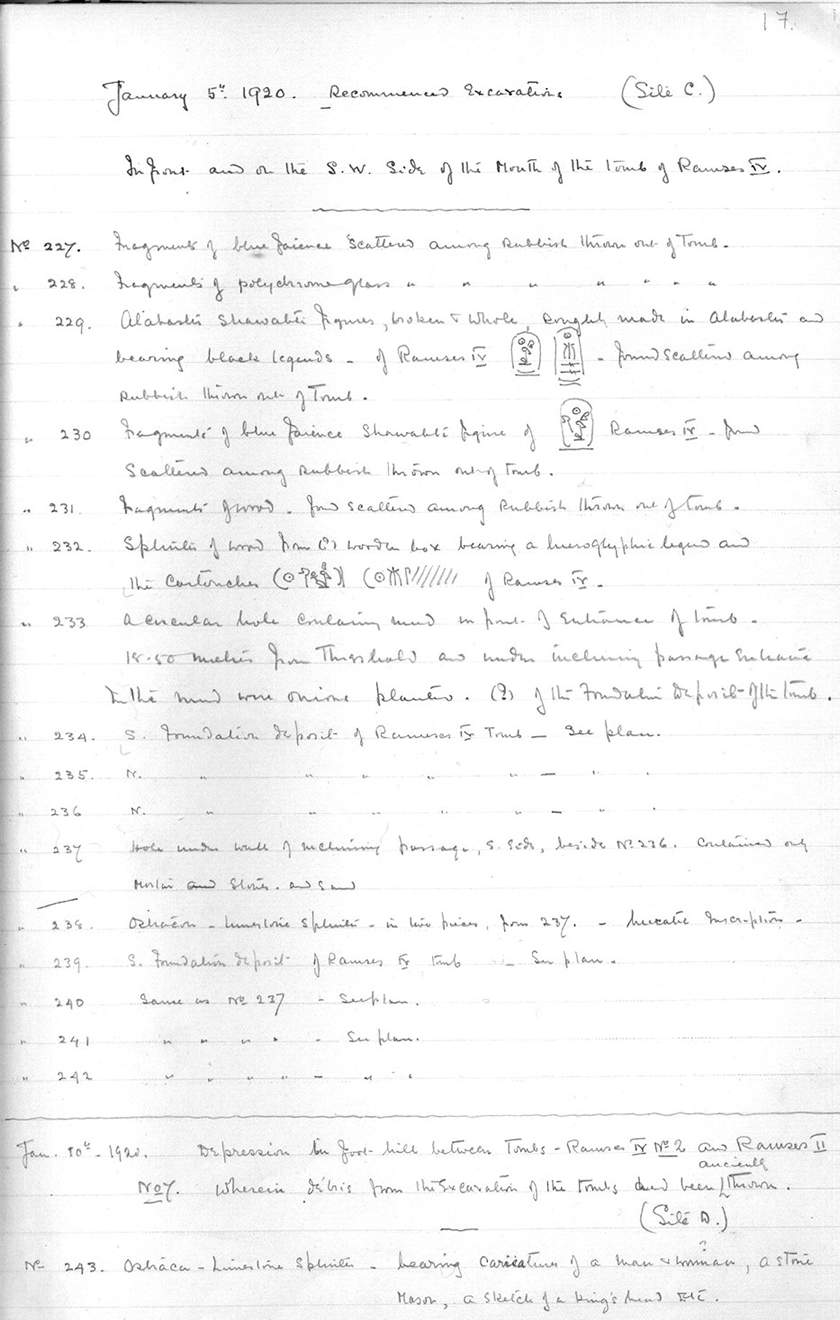 17.
January 5th 1920. Recommenced Excavations (Site C.)
In front and on the S.W. Side of the Mouth of the tomb of Ramses IV.
No 227. Fragments of blue faience Scattered among Rubbish thrown out of Tomb.
" 228. Fragments of polychrome glass " " " " " " "
" 229. Alabaster Shawabti figures, broken & whole, Roughly made in Alabaster and
bearing black legends - of Ramses IV - found scattered among
Rubbish thrown out of Tomb.
" 230 Fragments of blue faience Shawabti figure of Ramses IV - found
Scattered among Rubbish thrown out of tomb.
" 231. Fragments of wood. found scattered among Rubbish thrown out of tomb.
" 232. Splinter of wood from (?) wooden box bearing a hieroglyphic legend and
the Cartouches of Ramses IV.
" 233 A circular hole containing mud in front of Entrance of tomb.
18.50 metres from Threshold and under inclining passage Entrance
In the mud were onions planted. (?) of the Foundation Deposit of the tomb.
" 234. S. Foundation deposit of Rameses IV Tomb — See plan.
" 235. N. " " " " — " "
" 236 N. " " " " " — " "
" 237 Hole under wall of inclining passage, S. Side, beside No 236. Contained only
Mortar and Stones. and Sand
" 238. Ostracon - limestone Splinter - in two pieces, from 237. - hieratic Inscription -
" 239. S. Foundation deposit of Ramses IV tomb - See plan.
" 240 Same as No 237 - See plan.
" 241 " " " " - See plan.
" 242 " " " " - " "
Jan. 10th - 1920. Depression in foot hill between Tombs - Ramses IV No 2 and Ramses II
No 7. Wherein débris from the Excavation of the tombs had been anciently thrown.
(Site D.)
No 243. Ostraca - Limestone Splinters - bearing caricature of a man & woman ?, a stone
Mason, a sketch of a King's head Etc.